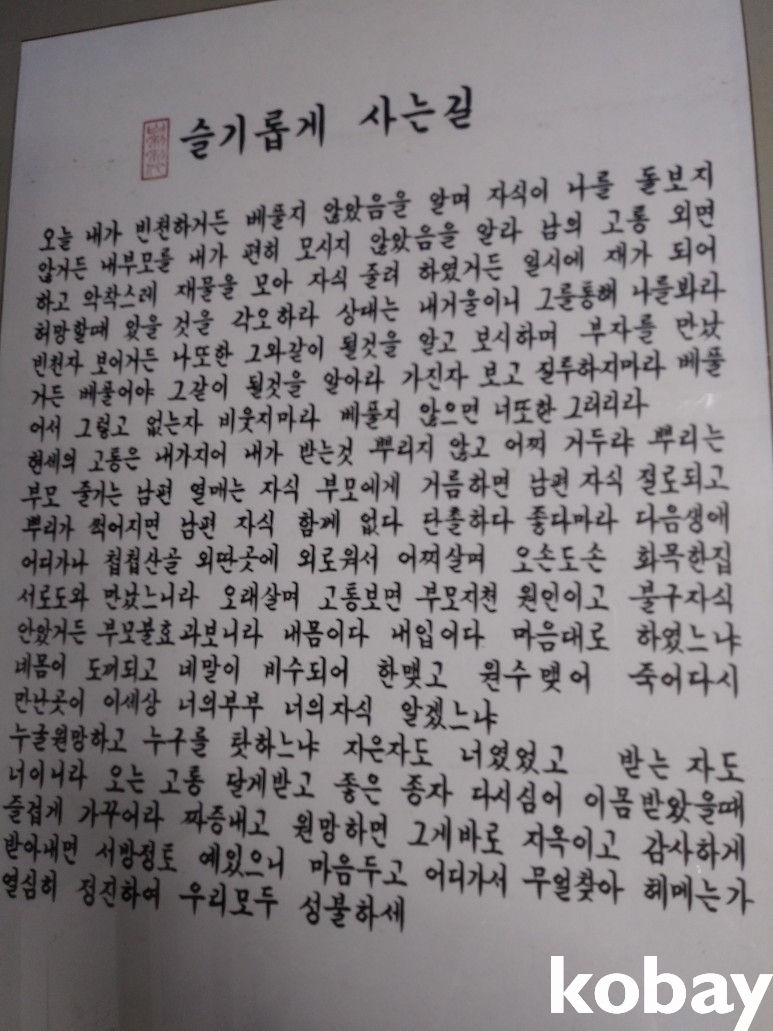 슬기롭게 사는길
오늘 내가 빈천하거든 베풀지 않았음을 알며 자식이 나를 돌보지
않거든 내부모를 내가 편히 모시지 않았음을 알라 남의 고통 외면
하고 악착스레 재물을 모아 자식 줄려 하였거든 일시에 재가 되어
허망할때 있을 것을 각오하라 상대는 내거울이니 그를통해 나를봐라
빈천자 보이거든 나또한 그와같이 될것을 알고 보시하며 부자를 만났
거든 베풀어야 그같이 될것을 알아라 가진자 보고 질투하지마라 베풀
어서 그렇고 없는자 비웃지마라 베풀지 않으면 너또한 그러리라
현세의 고통은 내가지어 내가 받는것 뿌리지 않고 어찌 거두랴 뿌리는
부모 줄기는 남편 열매는 자식 부모에게 거름하면 남편 자식 절로되고
뿌리가 썩어지면 남편 자식 함께 없다 단촐하다 좋다마라 다음생애
어디가나 첩첩산골 외딴곳에 외로워서 어찌살며 오손도손 화목한집
서로도와 만났느니라 오래살며 고통보면 부모지천 원인이고 불구자식
안았거든 부모불효과보니라 내몸이다 내입이다 마음대로 하였느냐
네몸이 도끼되고 네말이 비수되어 한맺고 원수맺어 죽어다시
만난곳이 이세상 너의부부 너의자식 알겠느냐
누굴원망하고 누구를 탓하느냐 지은자도 너였었고 받는 자도
너이니라 오는 고통 달게받고 좋은 종자 다시심어 이몸받았을때
즐겁게 가꾸어라 짜증내고 원망하면 그게바로 지옥이고 감사하게
받아내면 서방정토 예있으니 마음두고 어디가서 무얼찾아 헤메는가
열심히 정진하여 우리모두 성불하세
kobay